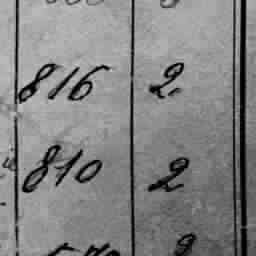 816 2
810 2